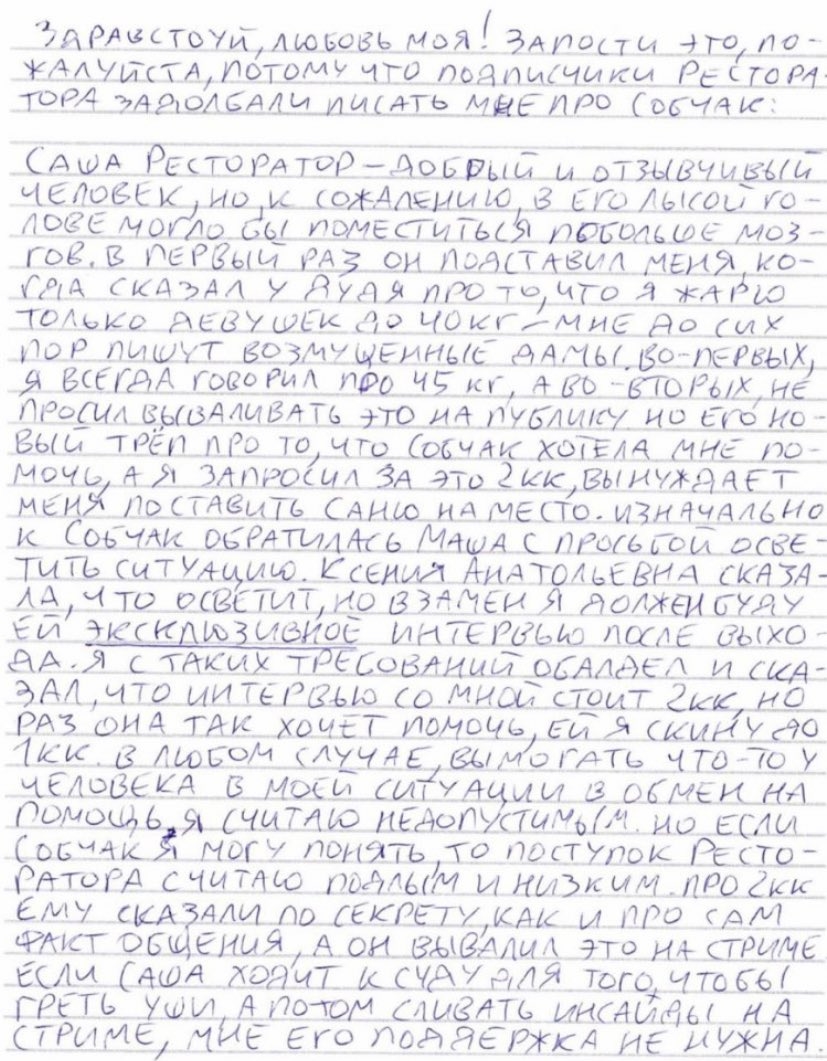 ЗДРАВСТВУЙ, ЛЮБОВЬ МОЯ! ЗАПОСТИ ЭТО, ПО-
ЖАЛУЙСТА, ПОТОМУ ЧТО ПОДПИСЧИКИ РЕСТОРА-
ТОРА ЗАДОЛБАЛИ ПИСАТЬ МНЕ ПРО СОБЧАК:
САША РЕСТОРАТОР – ДОБРЫЙ И ОТЗЫВЧИВЫЙ
ЧЕЛОВЕК, НО, К СОЖАЛЕНИЮ, В ЕГО ЛЫСОЙ ГО-
ЛОВЕ МОГЛО БЫ ПОМЕСТИТЬСЯ ПОБОЛЬШЕ МОЗ-
ГОВ. В ПЕРВЫЙ РАЗ ОН ПОДСТАВИЛ МЕНЯ, КО-
ГДА СКАЗАЛ У ДУДЯ ПРО ТО, ЧТО Я ЖАРЮ
ТОЛЬКО ДЕВУШЕК ДО 40 КГ – МНЕ ДО СИХ
ПОР ПИШУТ ВОЗМУЩЕННЫЕ ДАМЫ. ВО-ПЕРВЫХ,
Я ВСЕГДА ГОВОРИЛ ПРО 45 КГ, А ВО-ВТОРЫХ, НЕ
ПРОСИЛ ВЫВАЛИВАТЬ ЭТО НА ПУБЛИКУ. НО ЕГО НО-
ВЫЙ ТРЁП ПРО ТО, ЧТО СОБЧАК ХОТЕЛА МНЕ ПО-
МОЧЬ, А Я ЗАПРОСИЛ ЗА ЭТО 2КК, ВЫНУЖДАЕТ
МЕНЯ ПОСТАВИТЬ САНЮ НА МЕСТО. ИЗНАЧАЛЬНО
К СОБЧАК ОБРАТИЛАСЬ МАША С ПРОСЬБОЙ ОСВЕ-
ТИТЬ СИТУАЦИЮ. КСЕНИЯ АНАТОЛЬЕВНА СКАЗА-
ЛА, ЧТО ОСВЕТИТ, НО ВЗАМЕН Я ДОЛЖЕН БУДУ
ЕЙ ЭКСКЛЮЗИВНОЕ ИНТЕРВЬЮ ПОСЛЕ ВЫХО-
ДА. Я С ТАКИХ ТРЕБОВАНИЙ ОБАЛДЕЛ И СКА-
ЗАЛ, ЧТО ИНТЕРВЬЮ СО МНОЙ СТОИТ 2КК, НО
РАЗ ОНА ТАК ХОЧЕТ ПОМОЧЬ, ЕЙ Я СКИНУ ДО
1КК. В ЛЮБОМ СЛУЧАЕ, ВЫМОГАТЬ ЧТО-ТО У
ЧЕЛОВЕКА В МОЕЙ СИТУАЦИИ В ОБМЕН НА
ПОМОЩЬ Я СЧИТАЮ НЕДОПУСТИМЫМ. НО ЕСЛИ
СОБЧАК Я МОГУ ПОНЯТЬ, ТО ПОСТУПОК РЕСТО-
РАТОРА СЧИТАЮ ПОДЛЫМ И НИЗКИМ. ПРО 2КК
ЕМУ СКАЗАЛИ ПО СЕКРЕТУ, КАК И ПРО САМ
ФАКТ ОБЩЕНИЯ, А ОН ВЫВАЛИЛ ЭТО НА СТРИМЕ
ЕСЛИ САША ХОДИТ К СУДУ ДЛЯ ТОГО, ЧТОБЫ
ГРЕТЬ УШИ, А ПОТОМ СЛИВАТЬ ИНСАЙДЫ НА
СТРИМЕ, МНЕ ЕГО ПОДДЕРЖКА НЕ НУЖНА.